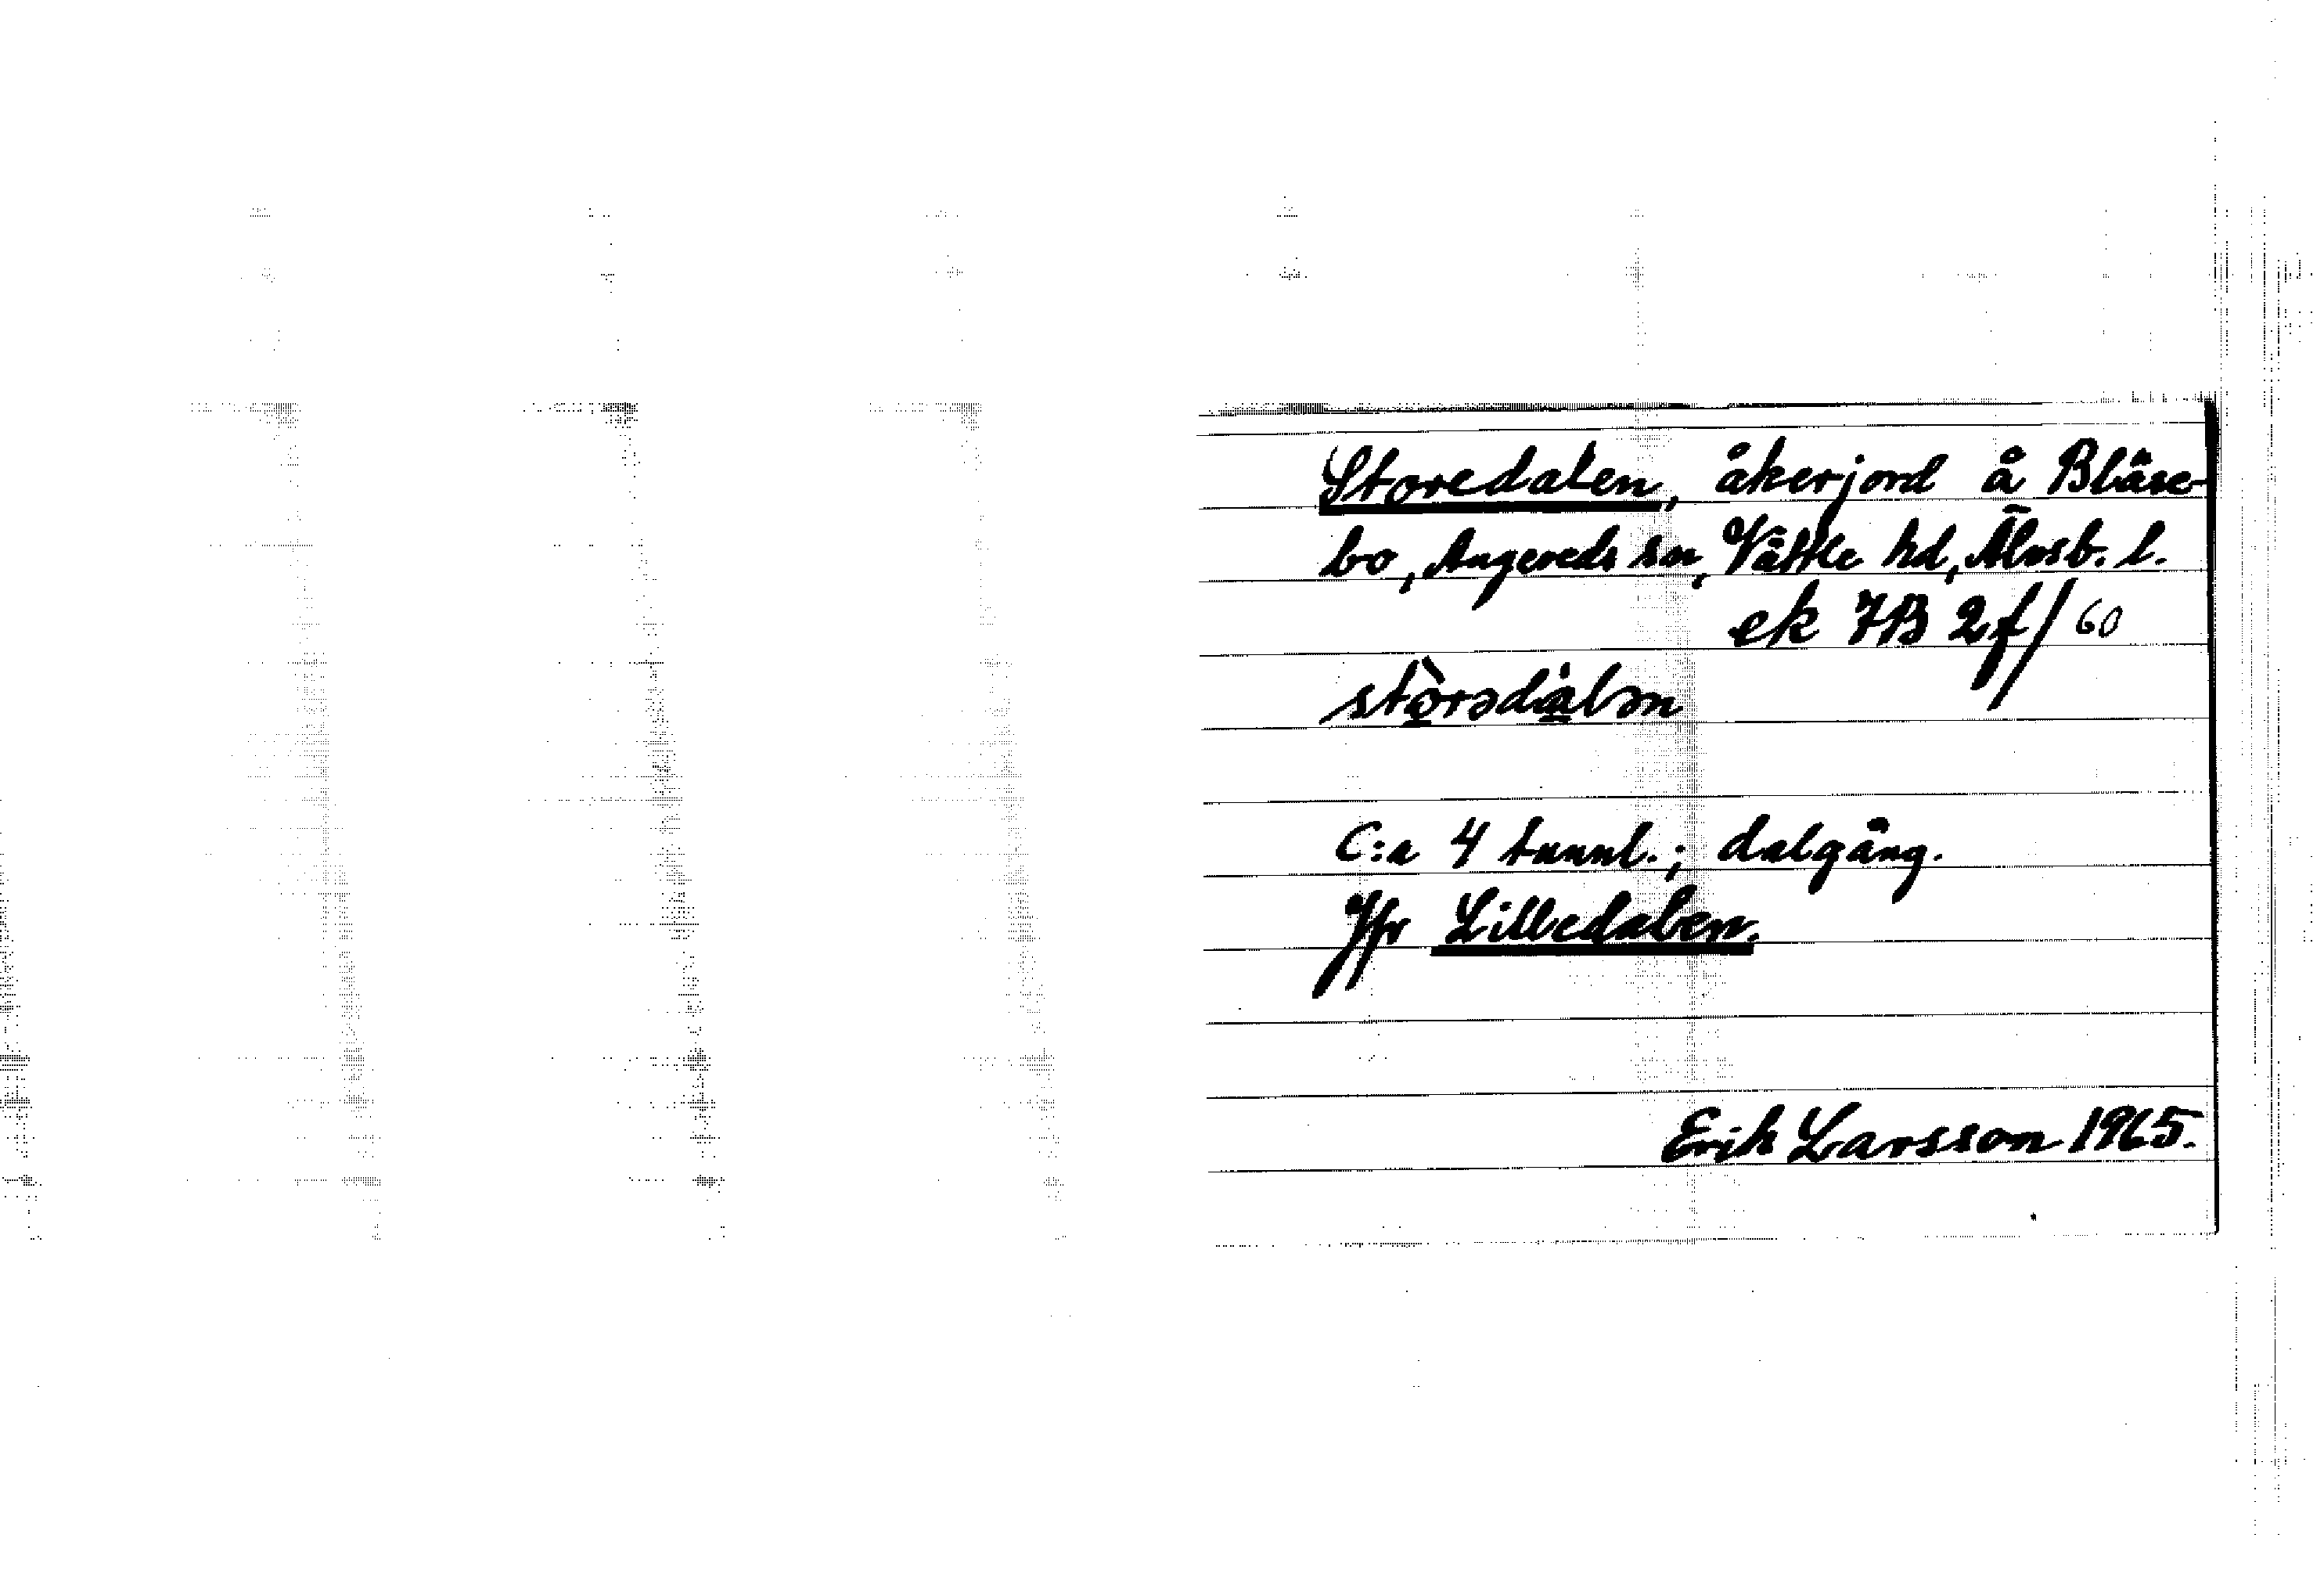 Storedalen, åkerjord å Bläse-
bo, Angereds sn, Vättle hd, Älvsb. l.
ek 7B 2f/60
stòrədàlən
C:a 4 tunnl.; dalgång.
Jfr Lilledalen.
Erik Larsson 1965.